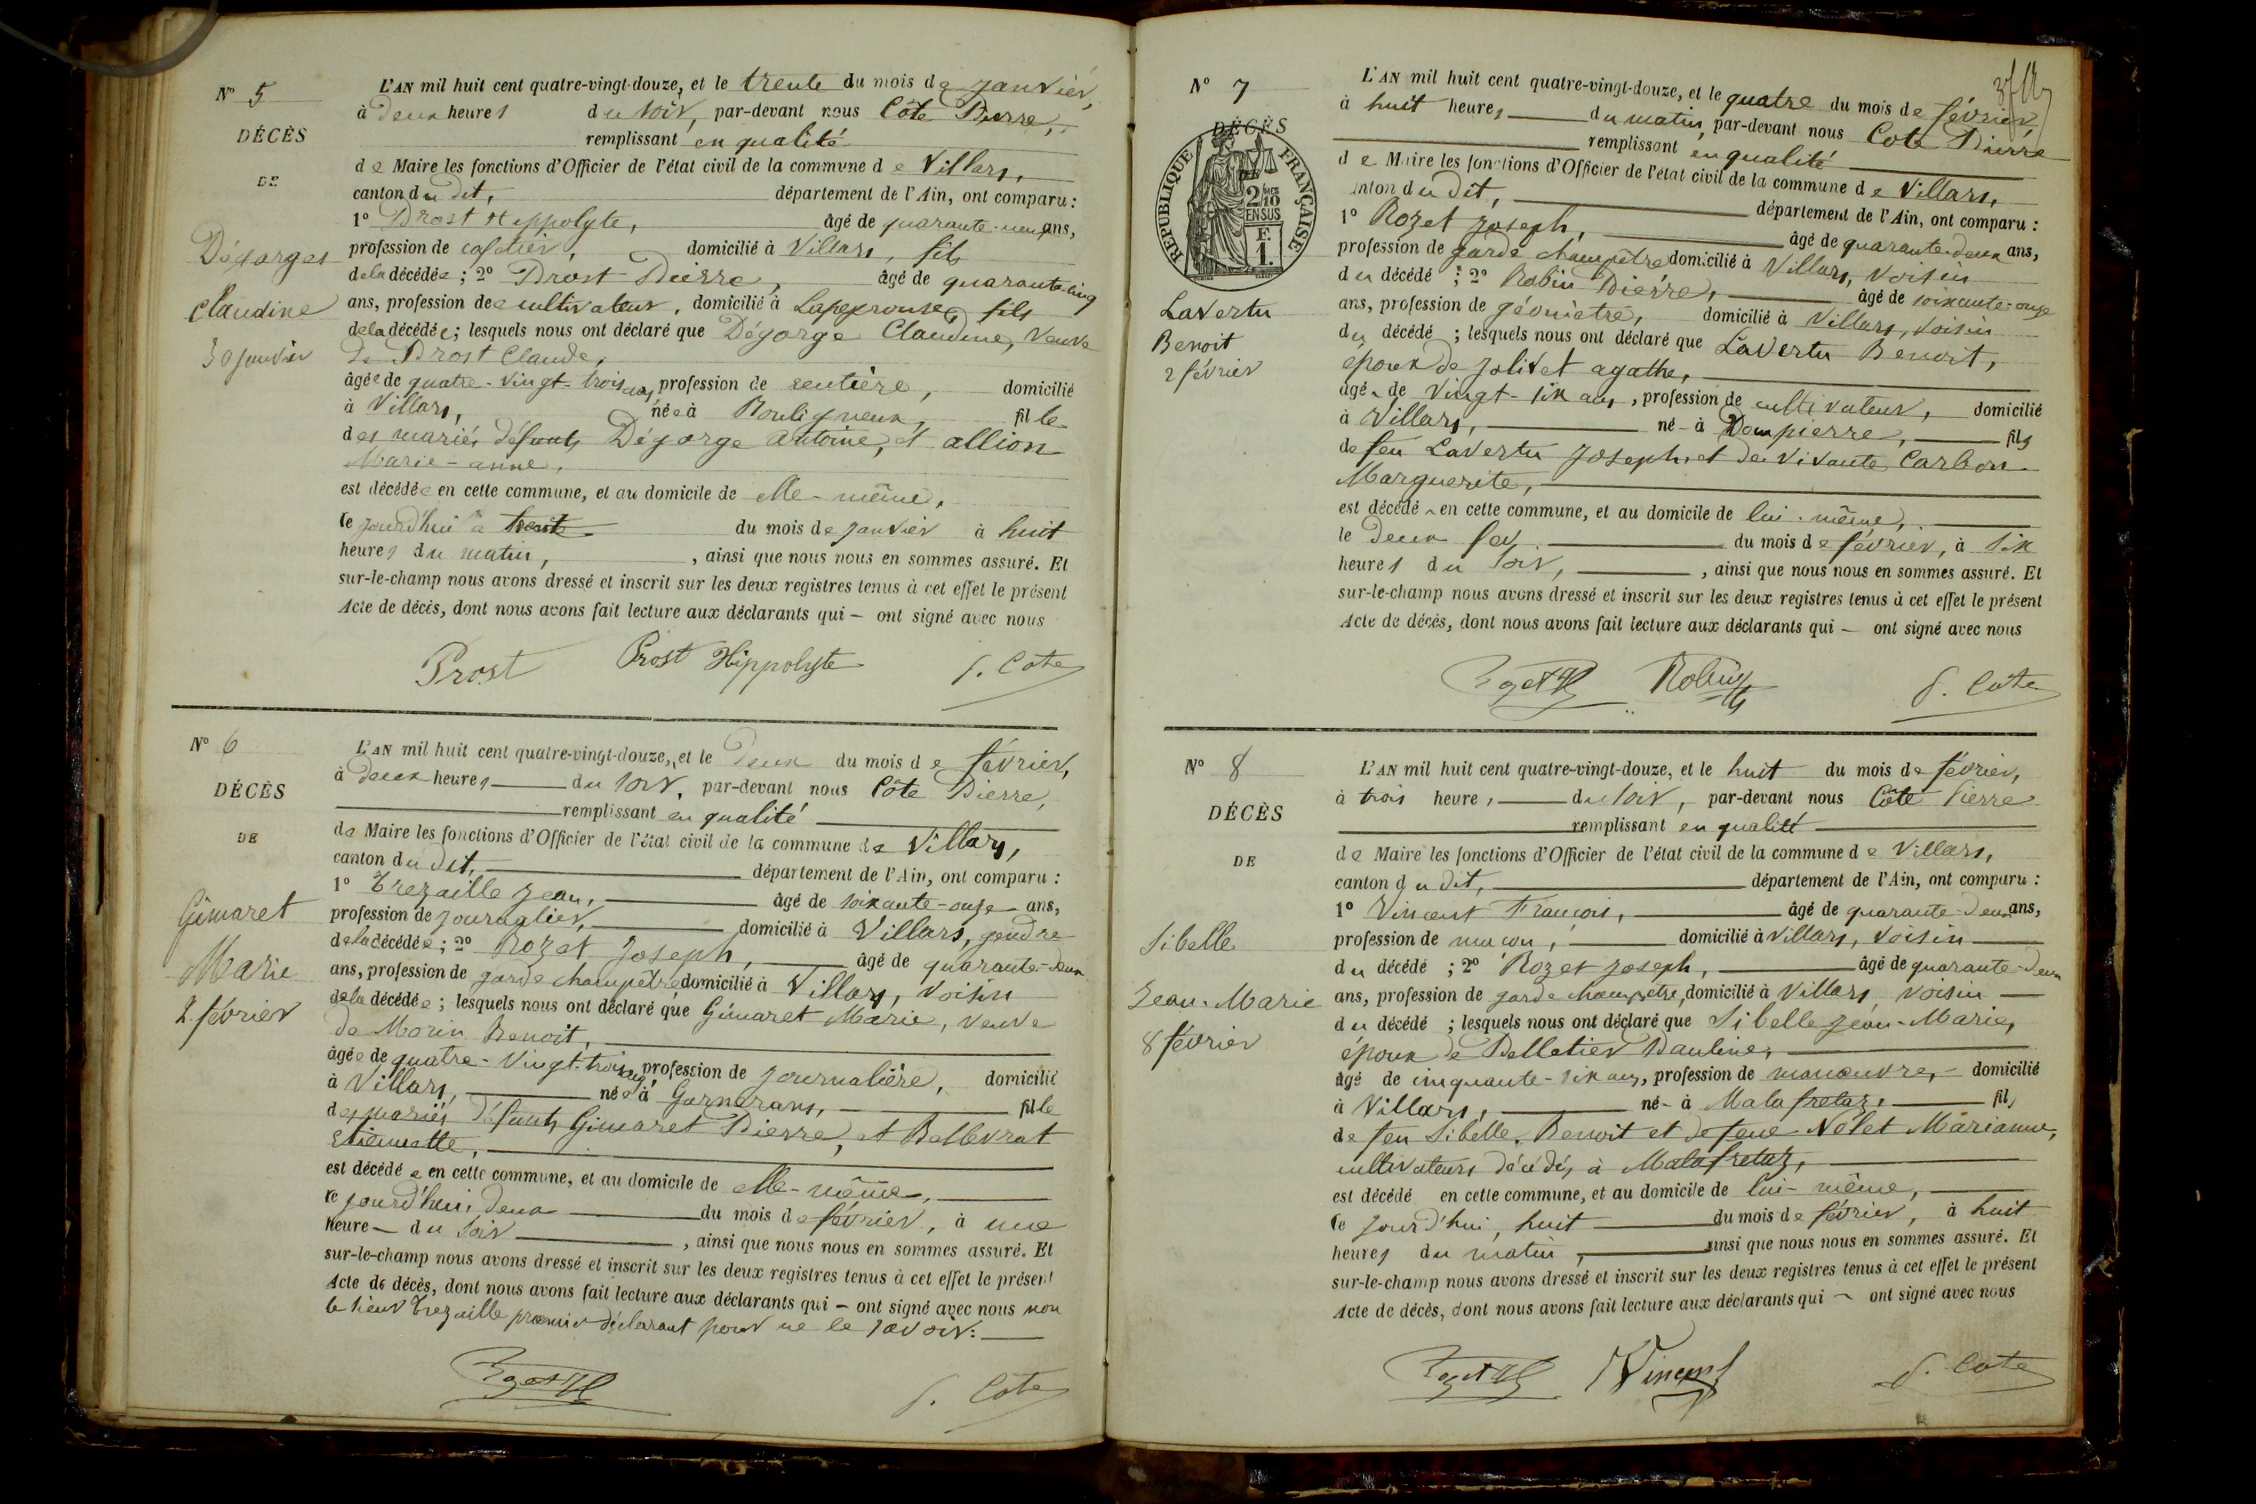 N° 5
DÉCÈS
DE
Dégorges
Claudine
30 janvier
L'AN mil huit cent quatre-vingt-douze, et le trente du mois de janvier,
à deux heures du soir, par-devant nous Côte Pierre,
remplissant en qualité
de Maire les fonctions d'Officier de l'état civil de la commune de Villars,
canton du dit, département de l'Ain, ont comparu :
1° Prost Hippolyte, âgé de quarante-neuf ans,
profession de cafetier, domicilié à Villars, fils
de la décédée ; 2° Prost Pierre, âgé de quarante-cinq
ans, profession de cultivateur, domicilié à Lapeyrouse, fils
de la décédée ; lesquels nous ont déclaré que Dégorge Claudine, veuve
de Prost Claude,
âgée de quatre-vingt-trois ans, profession de rentière, domicilié
à Villars, née à Bouligneux, fille
des mariés défunts Dégorge Antoine, et Allion
Marie-anne,
est décédée en cette commune, et au domicile de elle-même,
le jourd'hui à trente du mois de janvier à huit
heures du matin, , ainsi que nous nous en sommes assuré. Et
sur-le-champ nous avons dressé et inscrit sur les deux registres tenus à cet effet le présent
Acte de décès, dont nous avons fait lecture aux déclarants qui – ont signé avec nous
Prost Prost Hippolyte P. Côte
N° 6
DÉCÈS
DE
Gimaret
Marie
2 février
L'AN mil huit cent quatre-vingt-douze, et le deux du mois de février,
à deux heures du soir, par-devant nous Côte Pierre,
remplissant en qualité
de Maire les fonctions d'Officier de l'état civil de la commune de Villars,
canton du dit, département de l'Ain, ont comparu :
1° Trezaille Jean, âgé de soixante-onze ans,
profession de journalier, domicilié à Villars, gendre
de la décédée ; 2° Rozet Joseph, âgé de quarante-deux
ans, profession de garde champêtre domicilié à Villars, voisin
de la décédée ; lesquels nous ont déclaré que Gimaret Marie, veuve
de Morin Benoit,
âgée de quatre-vingt-trois ans, profession de journalière, domicilié
à Villars, née à Garnerans, fille
des mariés défunts Gimaret Pierre, et Bellevrat
Etiennette,
est décédée en cette commune, et au domicile de elle-même,
le jourd'hui, deux du mois de février, à une
heure – du soir , ainsi que nous nous en sommes assuré. Et
sur-le-champ nous avons dressé et inscrit sur les deux registres tenus à cet effet le présent
Acte de décès, dont nous avons fait lecture aux déclarants qui – ont signé avec nous non
le sieur Trezaille premier déclarant pour ne le savoir.
Rozet P. Côte
N° 7
DÉCÈS
RÉPUBLIQUE FRANÇAISE
2 10 EN SUS
F. 1.
Lavertu
Benoit
2 février
L'AN mil huit cent quatre-vingt-douze, et le quatre du mois de février
à huit heures du matin, par-devant nous Cote Pierre
remplissant en qualité
de Maire les fonctions d'Officier de l'état civil de la commune de Villars,
canton du dit, département de l'Ain, ont comparu :
1° Rozet Joseph, âgé de quarante-deux ans,
profession de garde champêtre domicilié à Villars, voisin
du décédé ; 2° Robin Pierre, âgé de soixante-onze
ans, profession de géomètre, domicilié à Villars, voisin
du décédé ; lesquels nous ont déclaré que Lavertu Benoit,
époux de Jolivet agathe,
âgé de vingt-six ans, profession de cultivateur, domicilié
à Villars, né à Dompierre, fils
de feu Lavertu Joseph, et de vivante Carbon
Marguerite,
est décédé en cette commune, et au domicile de lui-même,
le deux fév. du mois de février, à six
heures du soir, , ainsi que nous nous en sommes assuré. Et
sur-le-champ nous avons dressé et inscrit sur les deux registres tenus à cet effet le présent
Acte de décès, dont nous avons fait lecture aux déclarants qui – ont signé avec nous
Rozet Robin P. Côte
N° 8
DÉCÈS
DE
Sibelle
Jean-Marie
8 février
L'AN mil huit cent quatre-vingt-douze, et le huit du mois de février,
à trois heures du soir, par-devant nous Côte Pierre
remplissant en qualité
de Maire les fonctions d'Officier de l'état civil de la commune de Villars,
canton du dit, département de l'Ain, ont comparu :
1° Vincent François, âgé de quarante-deux ans,
profession de maçon, domicilié à Villars, voisin
du décédé ; 2° Rozet Joseph, âgé de quarante-deux
ans, profession de garde champêtre, domicilié à Villars voisin
du décédé ; lesquels nous ont déclaré que Sibelle Jean-Marie,
époux de Pelletier Pauline,
âgé de cinquante-six ans, profession de manœuvre, domicilié
à Villars, né à Malafretaz, fils
de feu Sibelle Benoit et de feue Nolet Marianne,
cultivateurs décédés à Malafretaz,
est décédé en cette commune, et au domicile de lui-même,
le jourd'hui, huit du mois de février, à huit
heures du matin, ainsi que nous nous en sommes assuré. Et
sur-le-champ nous avons dressé et inscrit sur les deux registres tenus à cet effet le présent
Acte de décès, dont nous avons fait lecture aux déclarants qui – ont signé avec nous
Rozet Vincent P. Cote